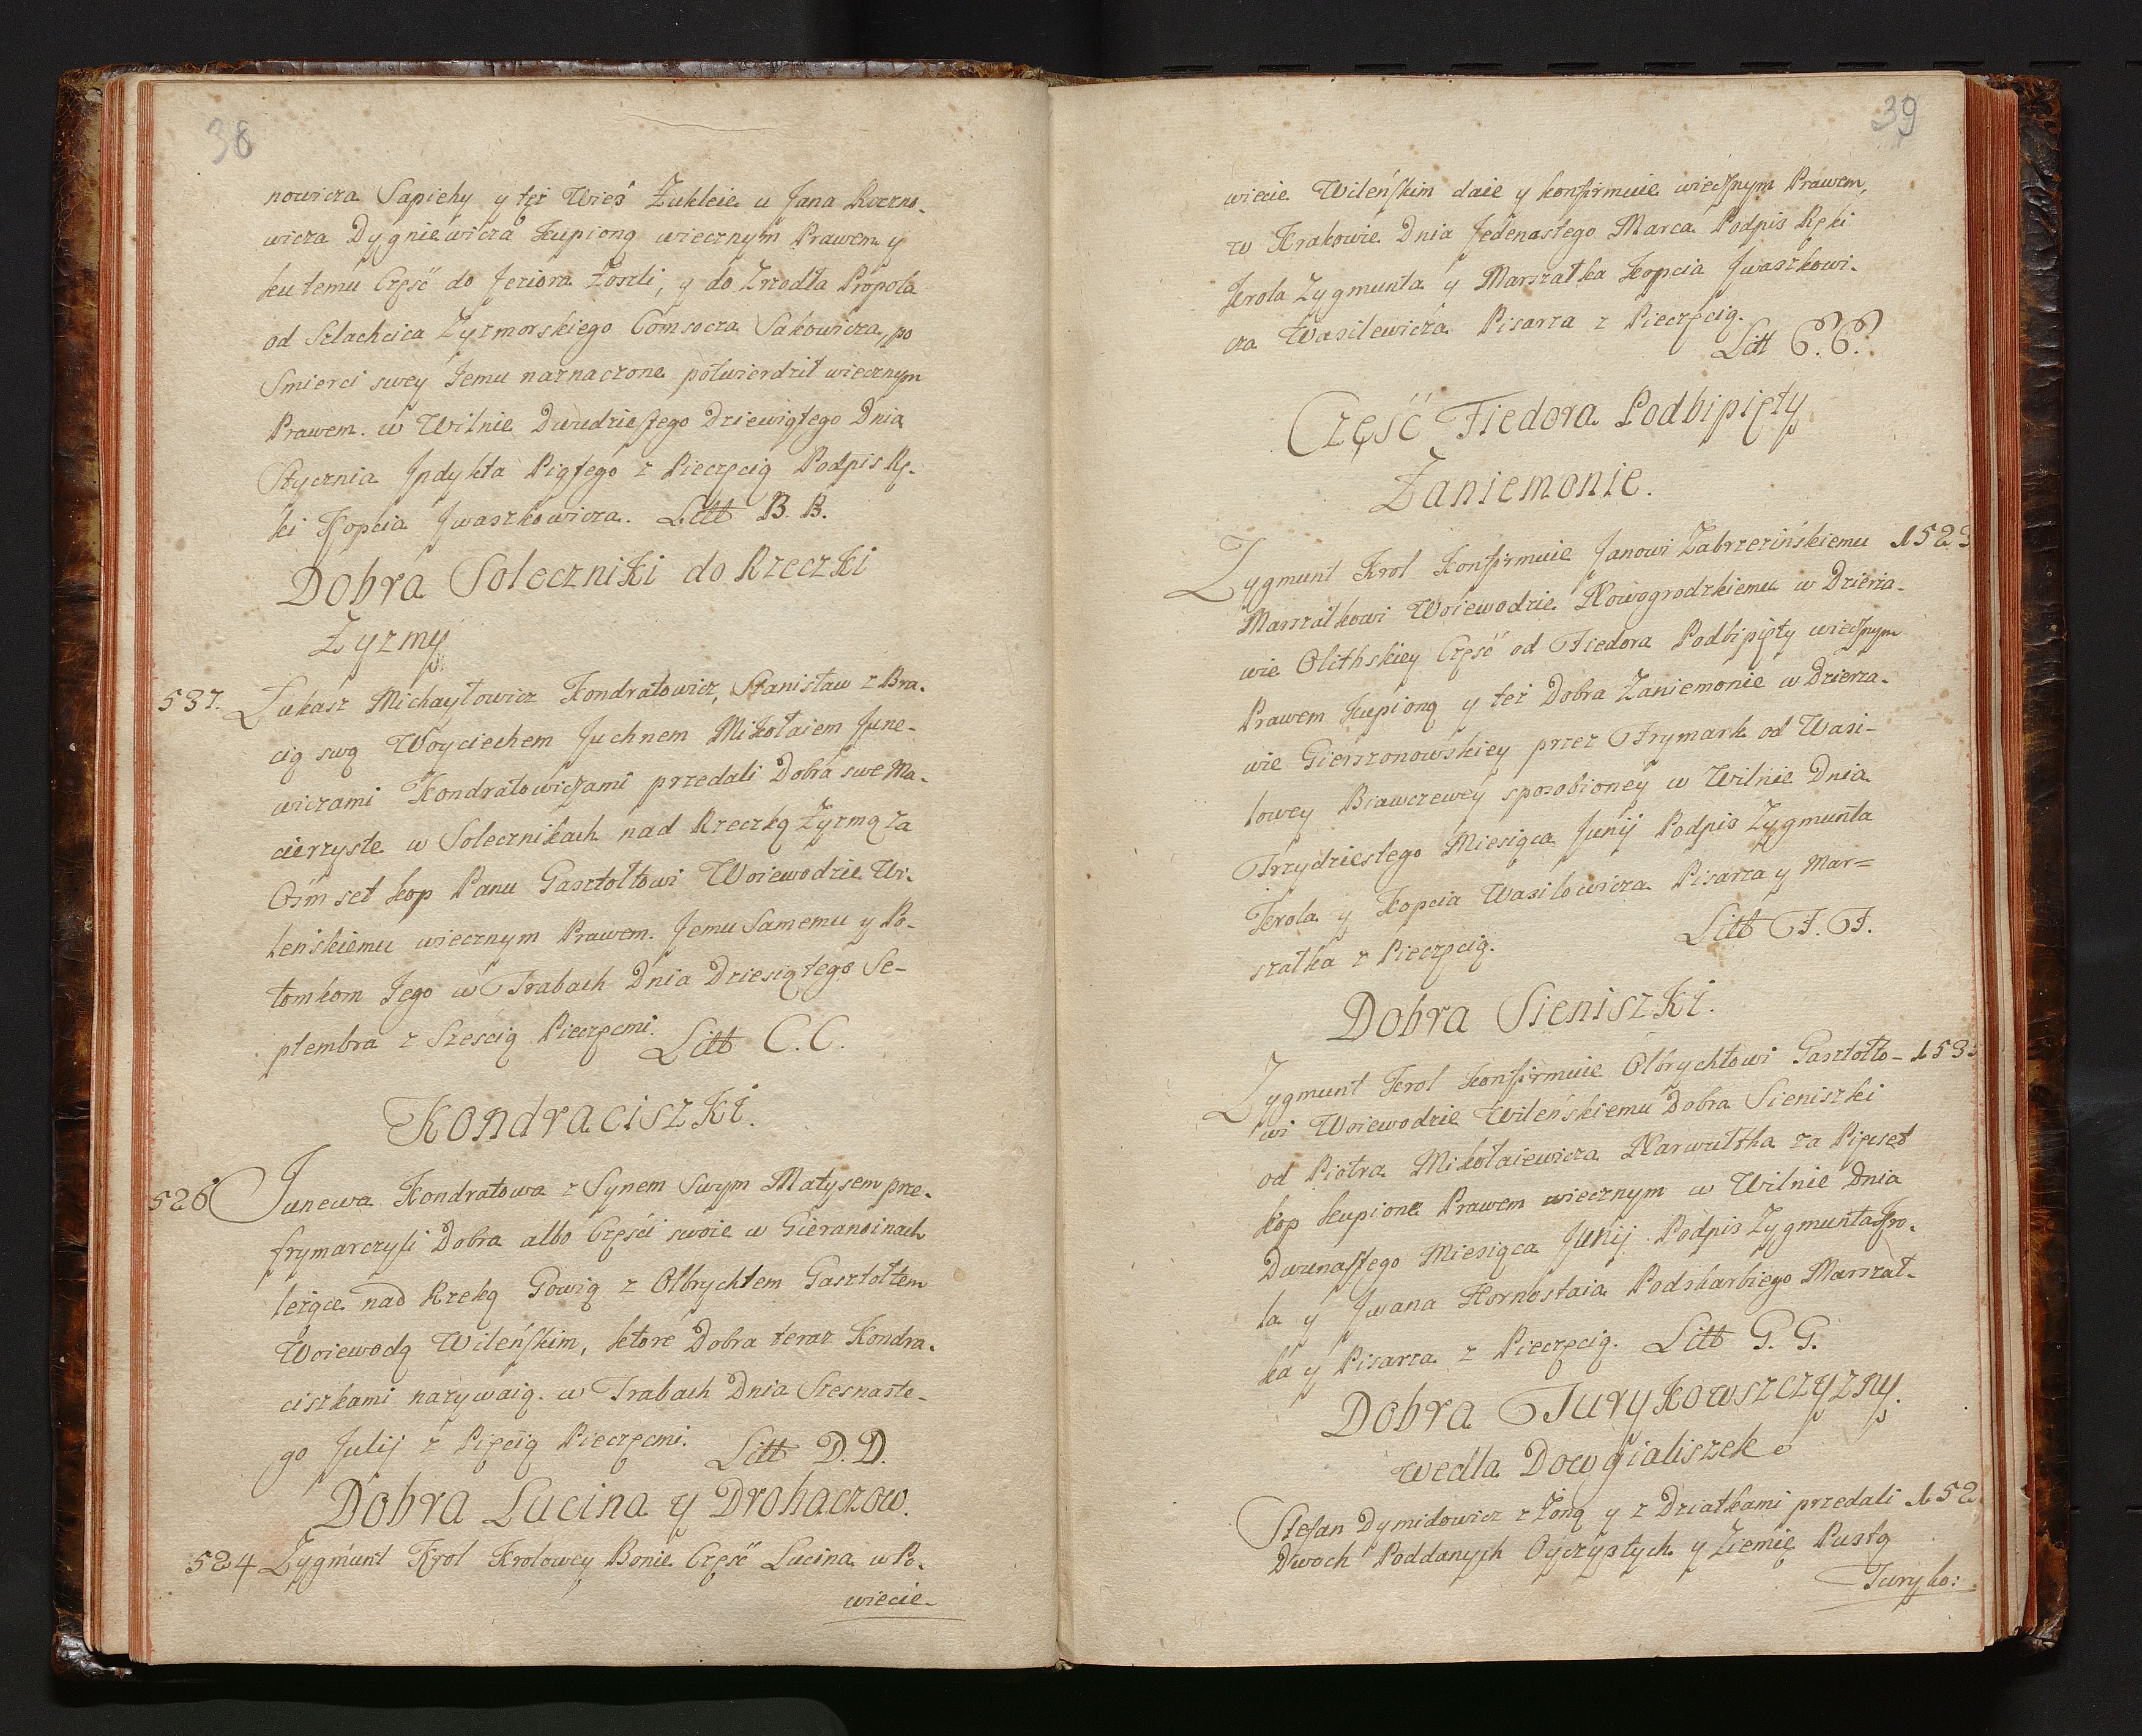 38
nowicza Sapiehy y też Wieś Żukleie u Jana Roczno-
wicza Dygniewicza kupioną wiecznym Prawem y
ku temu Część do Jeziora Żoszli, y do Zrzodła Propola
od Szlachcica Zyzmorskiego Comsocza Sakowicza, po
Smierci swey Jemu naznaczone potwierdził wiecznym
Prawem. w Wilnie Dwudziestego Dziewiątego Dnia
Stycznia Jndykta Piątego z Pieczęcią Podpis Rę-
ki Kopcia Jwaszkowicza. Litt B. B.
Dobra Soleczniki do Rzeczki
Żyzmy
537. Łukasz Michayłowicz Kondratowicz, Stanisław z Bra-
cią swą Woyciechem Juchnem Mikołaiem June-
wiczami Kondratowiczami przedali Dobra swe Ma-
cierzyste w Solecznikach nad Rzeczką Żyzmą za
Ośm set kop Panu Gasztołtowi Woiewodzie Wi-
leńskiemu wiecznym Prawem. Jemu Samemu y Po-
tomkom Jego w Trabach Dnia Dziesiątego Se-
ptembra z Sześcią Pieczęcmi. Litt C. C.
Kondraciszki.
526 Junewa Kondratowa z Synem Swym Matysem prze-
frymarczyli Dobra albo Części swoie w Gieranoinach
leżące nad Rzeką Gowią z Olbrychtem Gasztołtem
Woiewodą Wileńskim, ktore Dobra teraz Kondra-
ciszkami nazywaią. w Trabach Dnia Szesnaste-
go Julij z Pięcią Pieczęcmi. Litt D. D.
Dobra Lucina y Drohaczow.
524 Zygmunt Krol Krolowey Bonie Część Lucina w Po-
wiecie
39
wiecie Wileńskim daie y konfirmuie wiecznym Prawem,
w Krakowie Dnia Jedenastego Marca Podpis Ręki
Krola Zygmunta y Marszałka Kopcia Jwaszkowi-
cza Wasilewicza Pisarza z Pieczęcią.
Litt E. E.
Część Fiedora Podbipięty
Zaniemonie.
Zygmunt Krol Konfirmuie Janowi Zabrzezińskiemu 1523
Marszałkowi Woiewodzie Nowogrodzkiemu w Dzierża-
wie Olithskiey Część od Fiedora Podbipięty wiecznym
Prawem kupioną y też Dobra Zaniemonie w Dzierża-
wie Gierszonowskiey przez Frymark od Wasi-
lowey Biawczewey sposobioney w Wilnie Dnia
Trzydziestego Miesiąca Junij Podpis Zygmunta
Krola y Kopcia Wasilowicza Pisarza y Mar=
szałka z Pieczęcią. Litt F. F.
Dobra Sieniszki.
Zygmunt Krol konfirmuie Olbrychtowi Gasztołto- 153
wi Woiewodzie Wileńskiemu Dobra Sieniszki
od Piotra Mikołaiewicza Narwultha za Pięcset
kop kupione Prawem wiecznym w Wilnie Dnia
Dwunastego Miesiąca Junij Podpis Zygmunta Kro-
la y Jwana Hornostaia Podskarbiego Marszał-
ka y Pisarza z Pieczęcią. Litt G. G.
Dobra Turykowszczyzny
wedla Dowgialiszek
Stefan Dymidowicz z Żoną y z Dziatkami przedali 152
Dwoch Poddanych Oyczystych y Ziemię Pustą
Turyko: